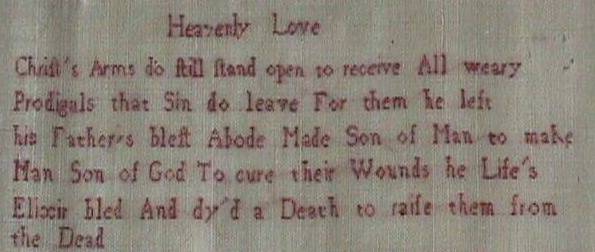 Heavenly Love
Christ's Arms do ſtill ſtand open to receive All weary
Prodigals that Sin do leave For them he left
his Father's bleſt Abode Made Son of Man to make
Man Son of God To cure their Wounds he Life's
Elixir bled And dy'd a Death to raiſe them from
the Dead